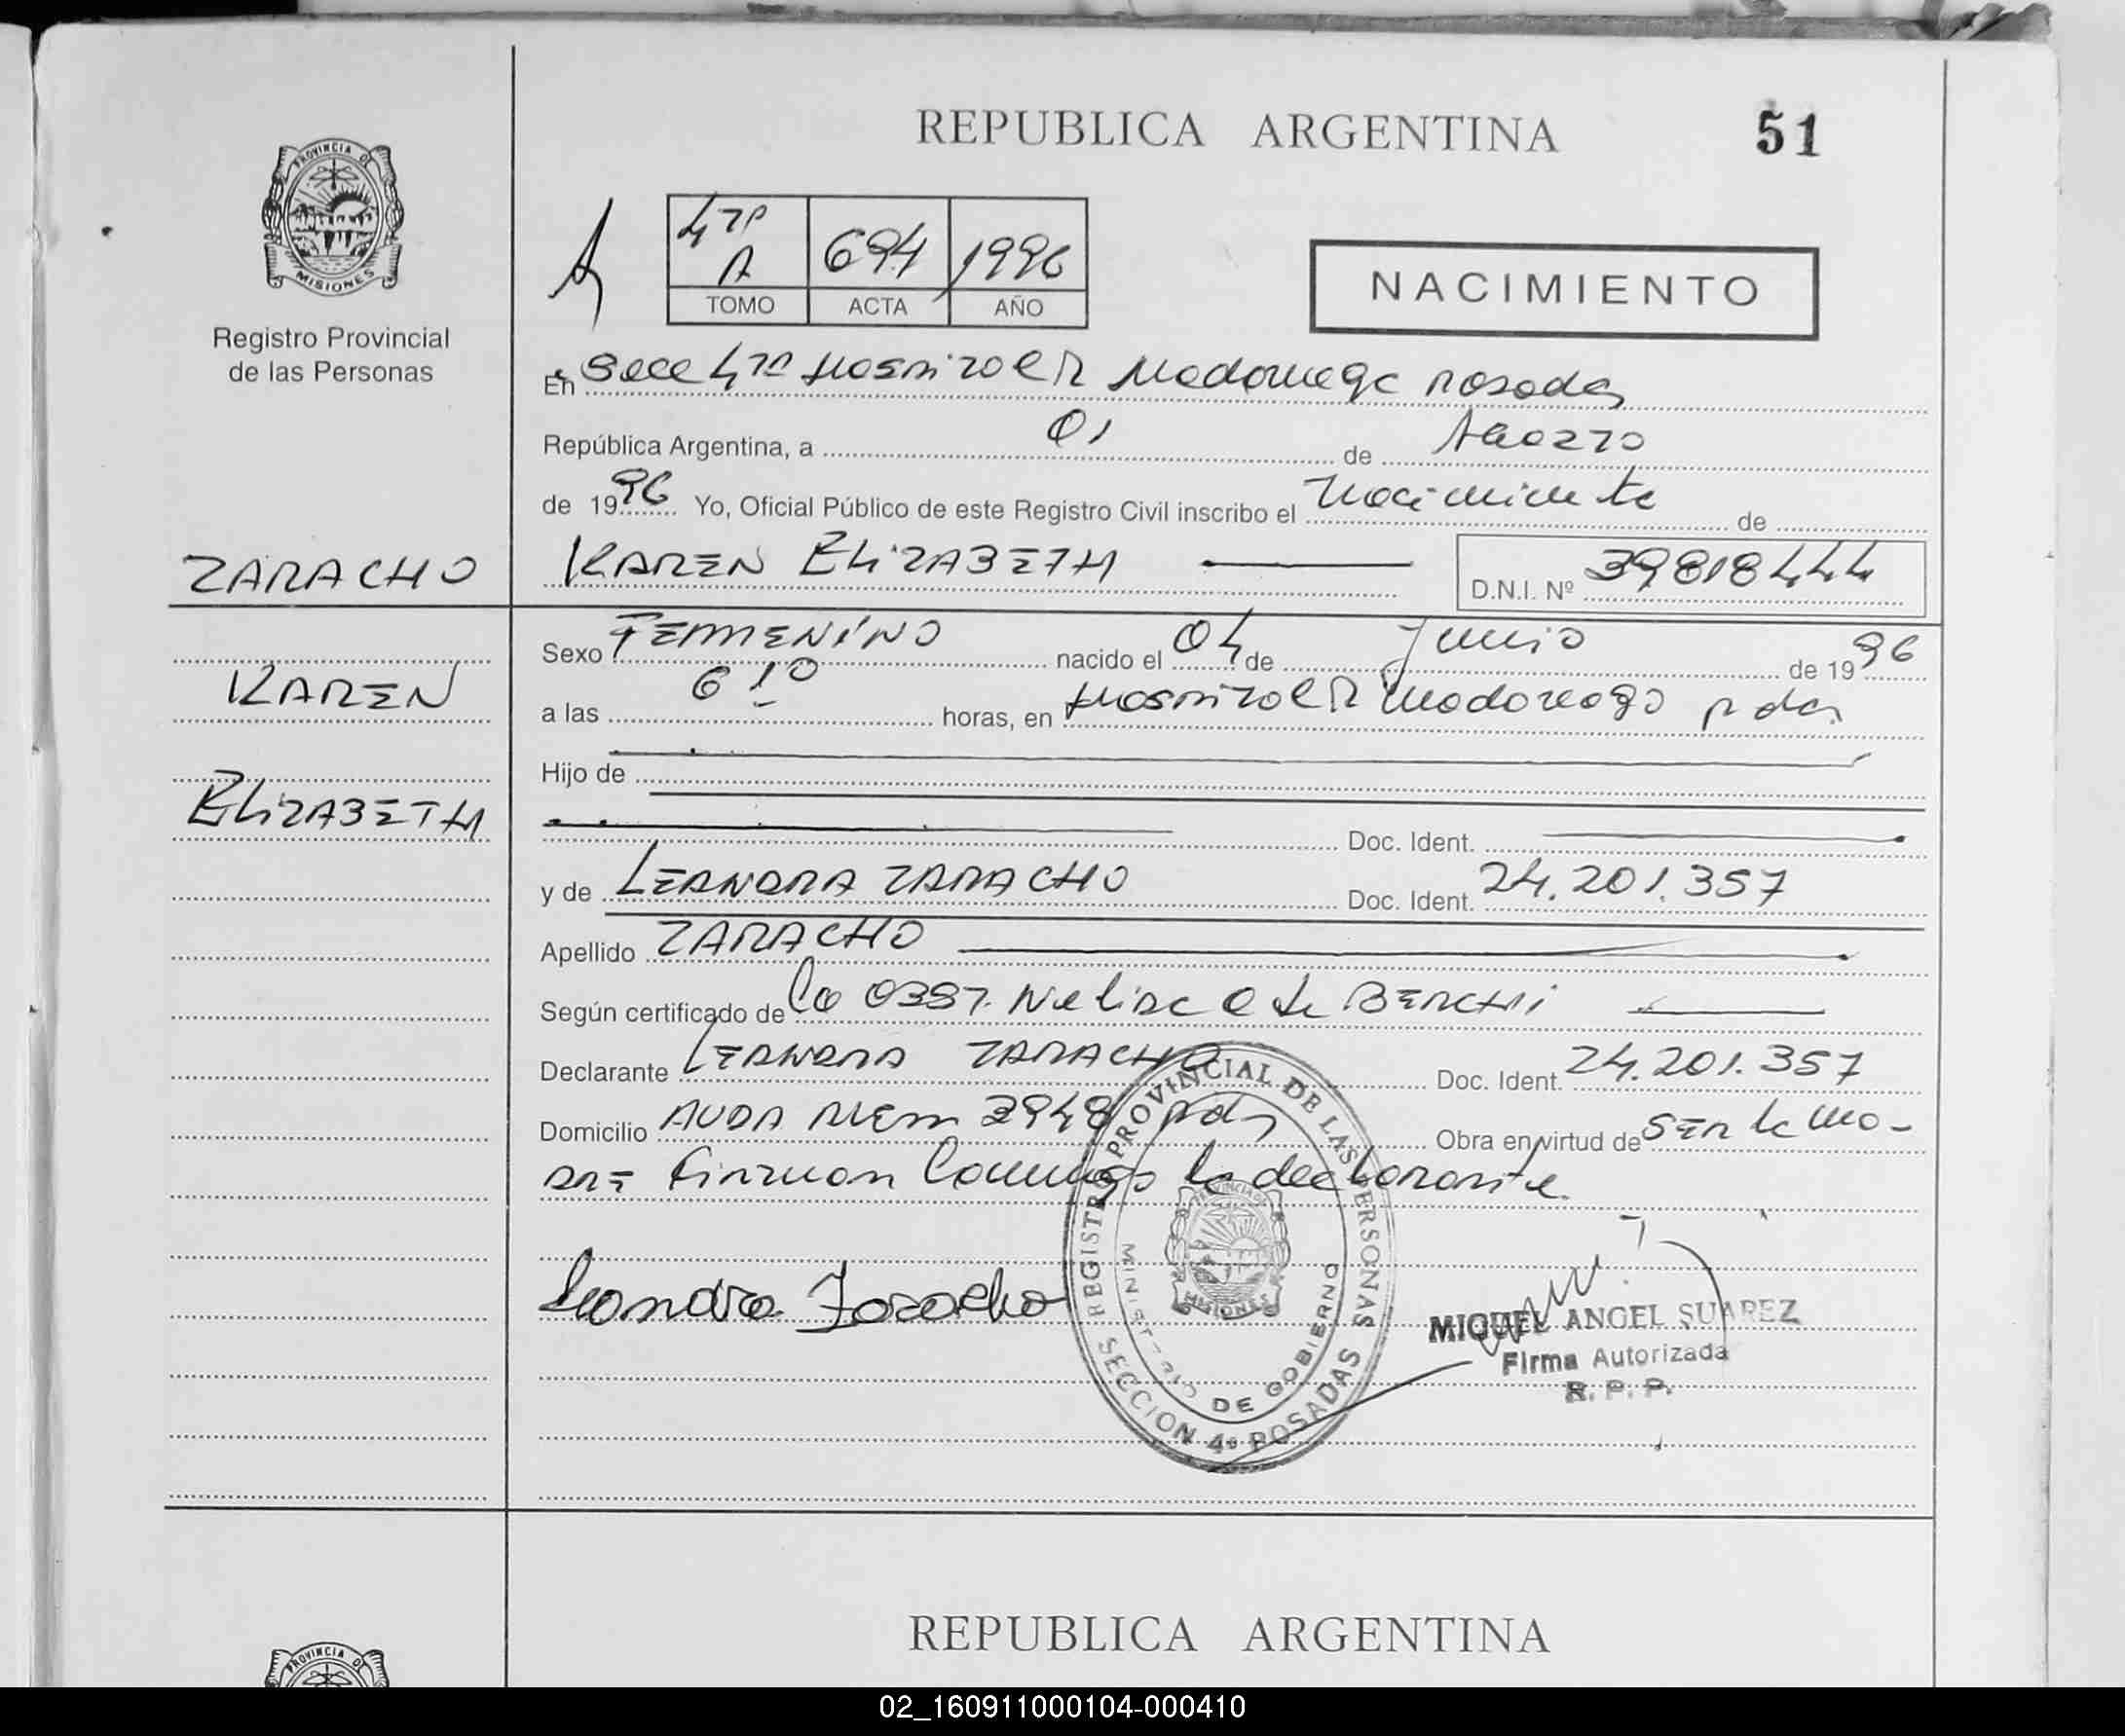 REPUBLICA ARGENTINA
51
PROVINCIA DE
MISIONES
Registro Provincial
de las Personas
4ta A 694 1996
TOMO ACTA AÑO
NACIMIENTO
En Secc 4ta Hospital R Madariaga Posadas
República Argentina, a 01 de Agosto
de 1996 Yo, Oficial Público de este Registro Civil inscribo el Nacimiento de
ZARACHO
KAREN ELIZABETH
D.N.I. Nº 39818444
KAREN
ELIZABETH
Sexo FEMMENINO nacido el 04 de Junio de 1996
a las 6 10 horas, en Hospital R Madariaga Pdas
Hijo de
Doc. Ident.
y de LEANDRA ZARACHO Doc. Ident. 24.201.357
Apellido ZARACHO
Según certificado de La 0387. Nelida BERCHI
Declarante LEANDRA ZARACHO Doc. Ident. 24.201.357
Domicilio AVDA ALEM 3948 Pdas Obra en virtud de SER la MA-
DRE Firman Conmigo la declarante.
Leandra Zaracho
REGISTRO PROVINCIAL DE LAS PERSONAS
SECCION 4ª POSADAS
MINISTERIO DE GOBIERNO
MISIONES
MIGUEL ANGEL SUAREZ
Firma Autorizada
R. P. P.
REPUBLICA ARGENTINA
PROVINCIA DE
02_160911000104-000410